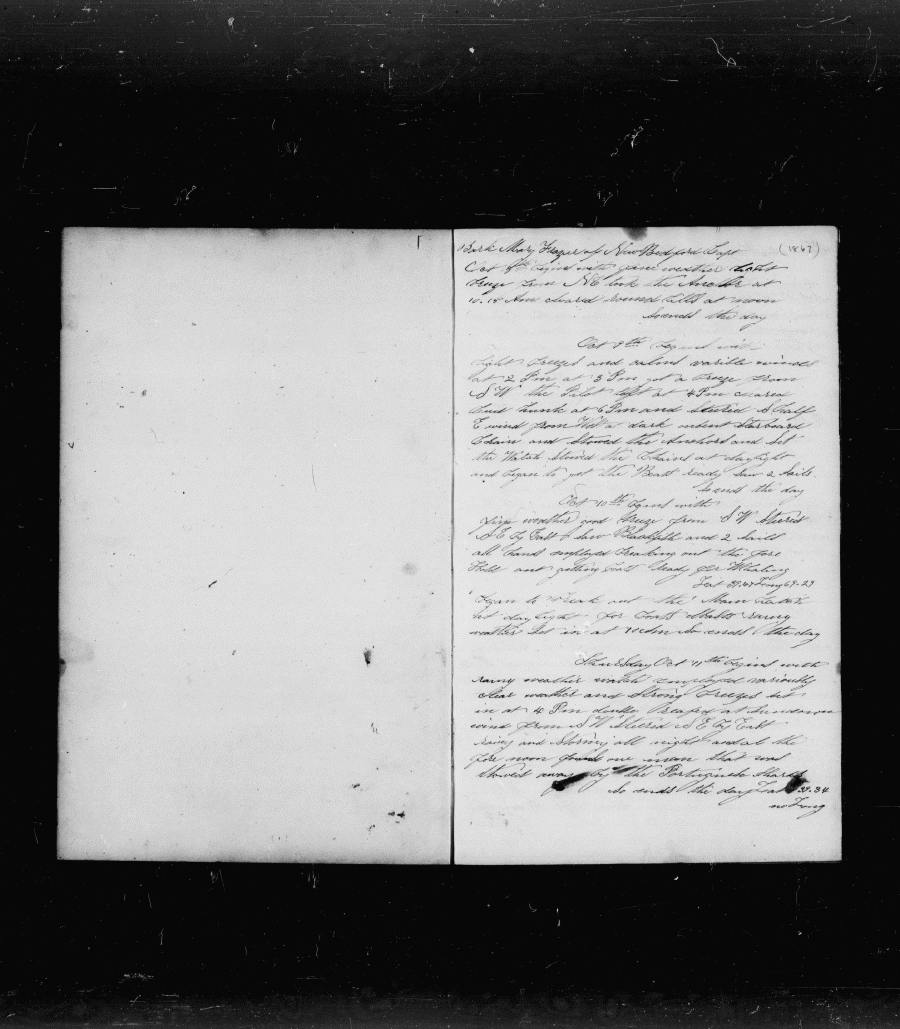 Bark Mary Frazer of New Bedford Capt (1867)
Oct 8th begins with fine weather light
breze from NE took the Anchor at
10.15 Am cleared round hills at noon
So ends the day
Oct 9th begins with
light brezes and calms varible winds
at 2 Pm at 3 Pm got a breze from
S W the Pilot left at 4 Pm cleared
at 6 Pm and stered S half
E wind from dark Starboard
Chain and Stowed the Anchors and Set
the Watch Stowed the Chains at daylight
and began to get the Boats ready Saw 2 Sails
So ends the day
Oct 10th begins with
fine weather good breze from S W Stered
S E by East Saw Blackfish and 2 Sails
all hands employed breaking out the fore
Hold and getting boats ready for Whaling
Lat 39.47 Long 69-23
began to break out the Main hatch
at daylight for boats rainy
weather Set in at Am So ends the day
Thursday Oct 11th begins with
rainy weather watch employed variously
clear weather and Strong brezes Set
in at 4 Pm double Reafed at Sundown
wind from S W Stered S E by East
rainy and Stormy all night and at the
fore noon found one man that was
Stowed away by the Portuguese Shares
So ends the day Lat 39.34
no Long